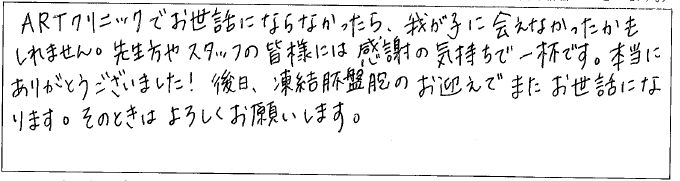 ARTクリニックでお世話にならなかったら、我が子に会えなかったかも
しれません。先生方やスタッフの皆様には感謝の気持ちで一杯です。本当に
ありがとうございました！後日、凍結胚盤胞のお迎えでまたお世話にな
ります。そのときはよろしくお願いします。